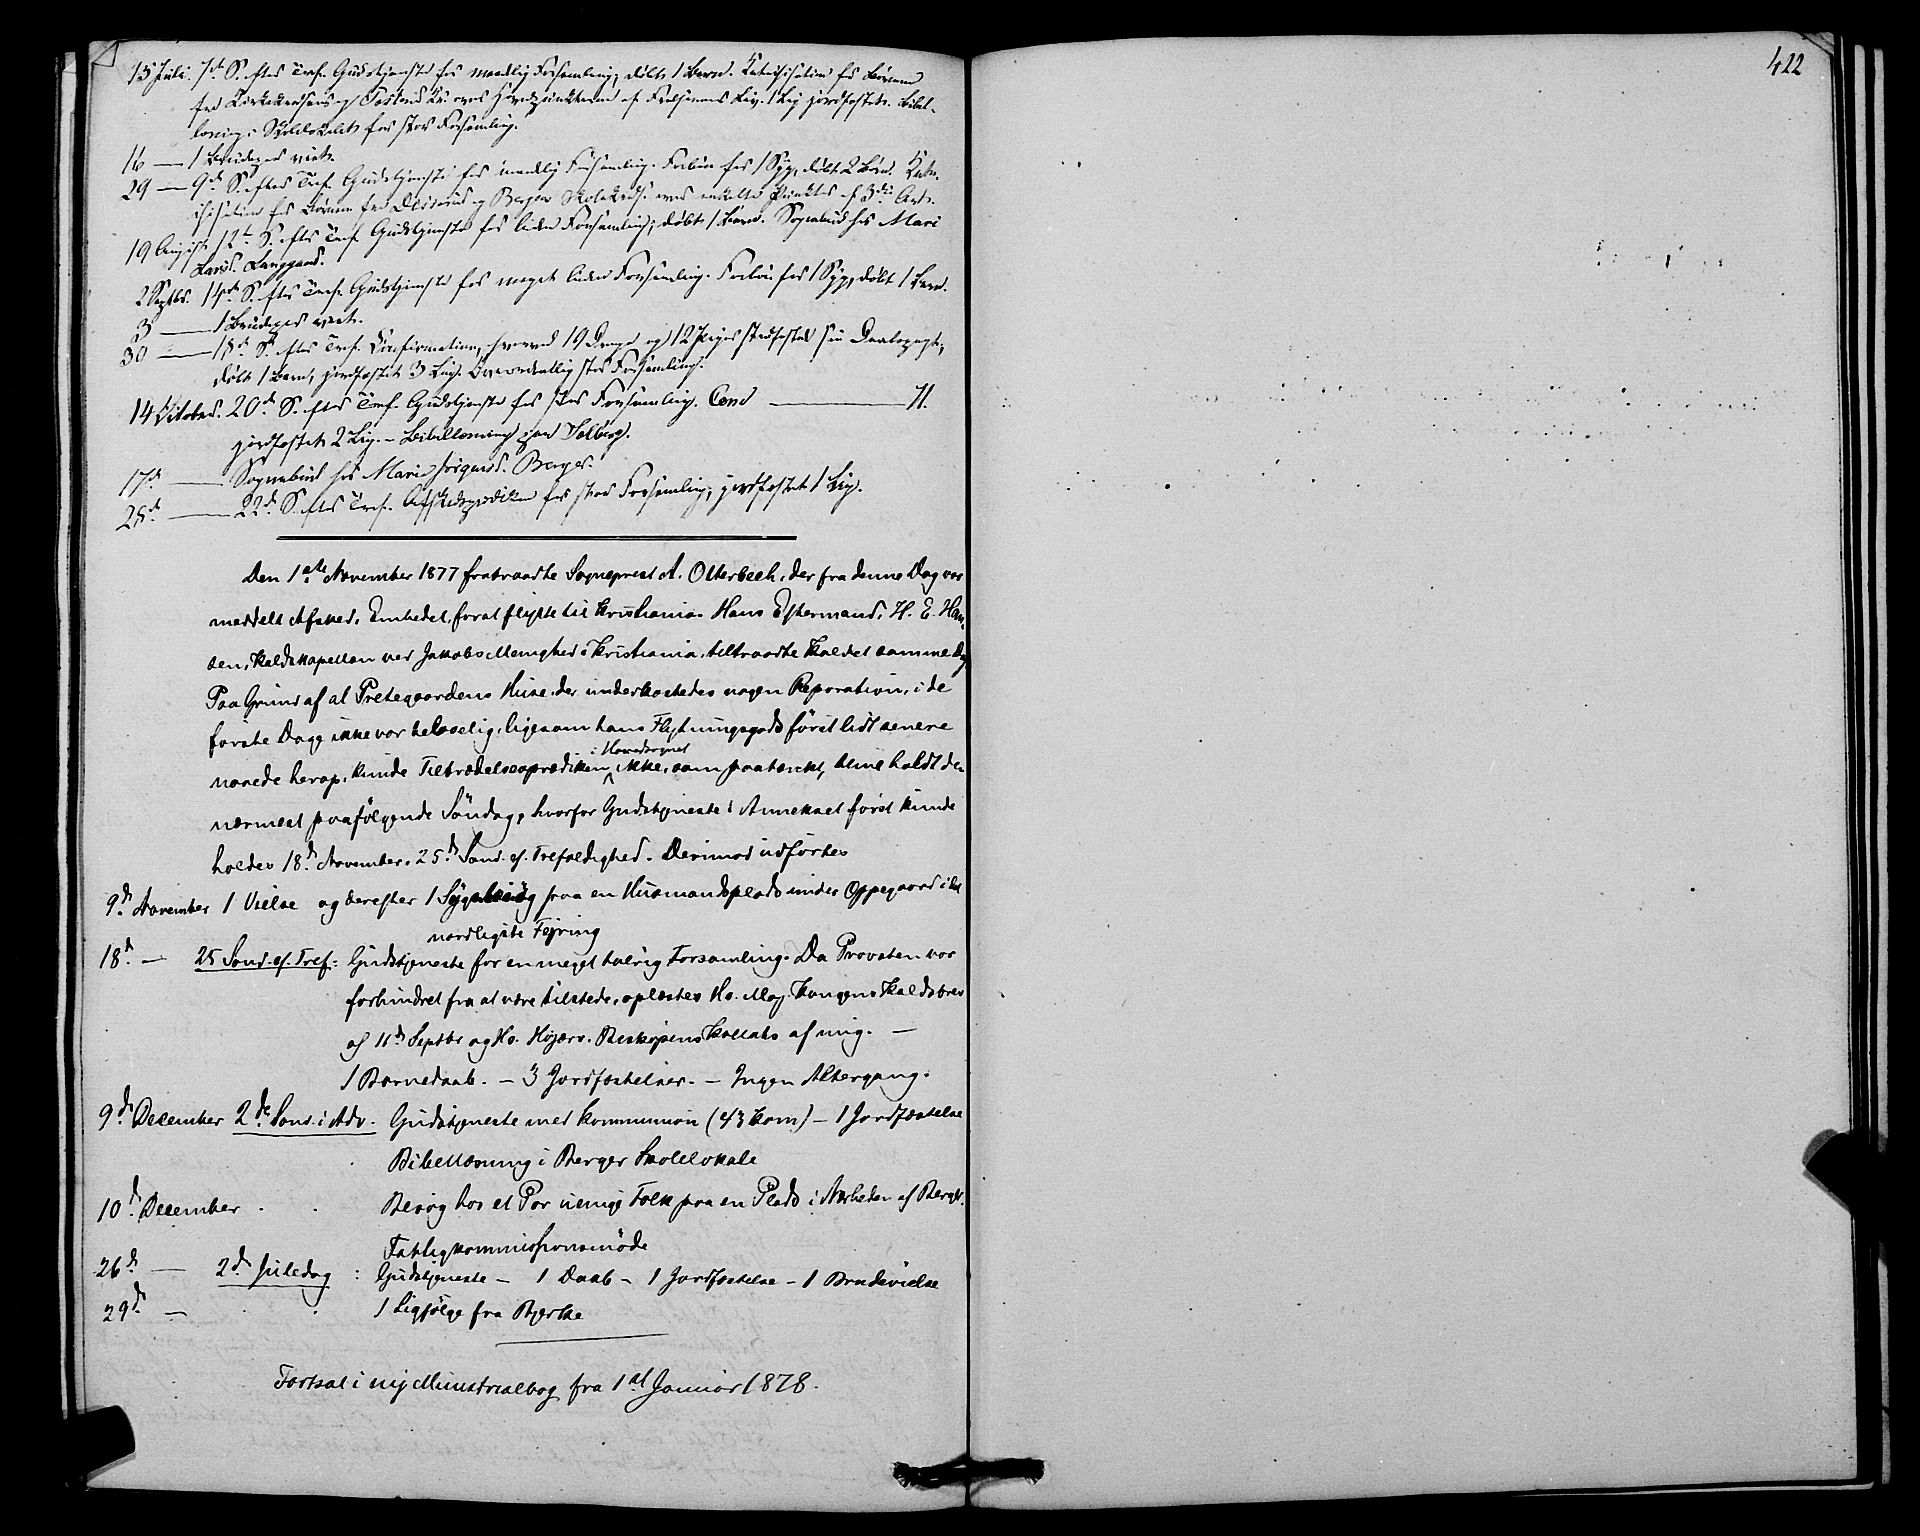 422
15 Juli. 7de S. efter Tref. Gudstjeneste for maadelig Forsamling, døbt 1 Barn. Katechisation for Børnene
fra Kirkekredsens og Kr. over Hovedpunkterne af Frelserens Liv. 1 Lig jordfæstet. Bibel-
læsning i Skolelokalet for stor Forsamling.
16 — 1 Brudepar viet.
29 — 9de S. efter Tref. Gudstjeneste for maadelig Forsamling. Forbøn for 1 Syg, døbt 2 Børn. Kate-
chisation for Børnene fra og Berger Skolekreds over enkelte Punkter af 3die Art.
19 August 12te S. efter Tref. Gudstjeneste for liden Forsamling; døbt 1 Barn. Sognebud hos Mari
Larsd. Langgaard.
2 Septbr. 14de S. efter Tref. Gudstjeneste for meget liden Forsamling. Forbøn for 1 Syg, døbt 1 Barn.
3 — 1 Brudepar viet.
30 — 18de S. efter Tref. Confirmation, hvorved 19 Drenge og 12 Piger stadfæstede sin Daabspagt;
døbt 1 Barn, jordfæstet 3 Lig. Overordentlig stor Forsamling.
14 October. 20de S. efter Tref. Gudstjeneste for stor Forsamling. Conf — 71.
jordfæstet 2 Lig. – Bibellæsning paa Solberg.
17de — Sognebud hos Marie Jörgensd. Berger.
28de — 22de S. efter Tref. Afskedsprædiken for stor Forsamling; jordfæstet 1 Lig.
Den 1ste November 1877 fratraadte Sogneprest A. Otterbech, der fra denne Dag var
meddelt Afsked, Embedet, forat flytte til Kristiania. Hans Eftermand, H. E. Han-
sen, Kaldskapellan ved Jakobs Menighed i Kristiania, tiltraadte Kaldet samme Dag
Paa Grund af at Prestegaardens Huse, der underkastedes nogen Reparation, i de
første Dage ikke var beboelig, ligesom hans Flytningsgods först lidt senere
naaede herop, kunde Tiltrædelsesprædiken i Hovedsognet ikke, som paatænkt, blive holdt den
nærmest paafölgende Söndag, hvorfor Gudstjeneste i Annekset först kunde
holdes 18de November, 25de Sönd. ef. Trefoldighed. Derimod udförtes
9de November 1 Vielse og derefter 1 Sygebesög paa en Husmandsplads under Oppegaard i det
nordligste Fejring
18de — 25 Sönd. ef. Tref: Gudstjeneste for en meget talrig Forsamling. Da Provsten var
forhindret fra at være tilstede, oplæstes Hs. Maj. Kongens Kaldsbrev
af 11te Septbr og Hs. Højærv. Biskopens Kollats af mig. —
1 Barnedaab. – 3 Jordfæstelser. – Ingen Altergang.
9de December 2de Sönd. i Adv. Gudstjeneste med Kommunion (43 Kom.) – 1 Jordfæstelse
Bibellæsning i Berger Skolelokale
10de December . . Besög hos et Par uenige Folk paa en Plads i Nærheden af Berger.
Fattigkommissionsmöde
26de — 2de Juledag : Gudstjeneste – 1 Daab – 1 Jordfæstelse – 1 Brudevielse
29de — . . 1 Ligfölge fra Bjerke
Fortsat i ny Ministerialbog fra 1st Januar 1878.